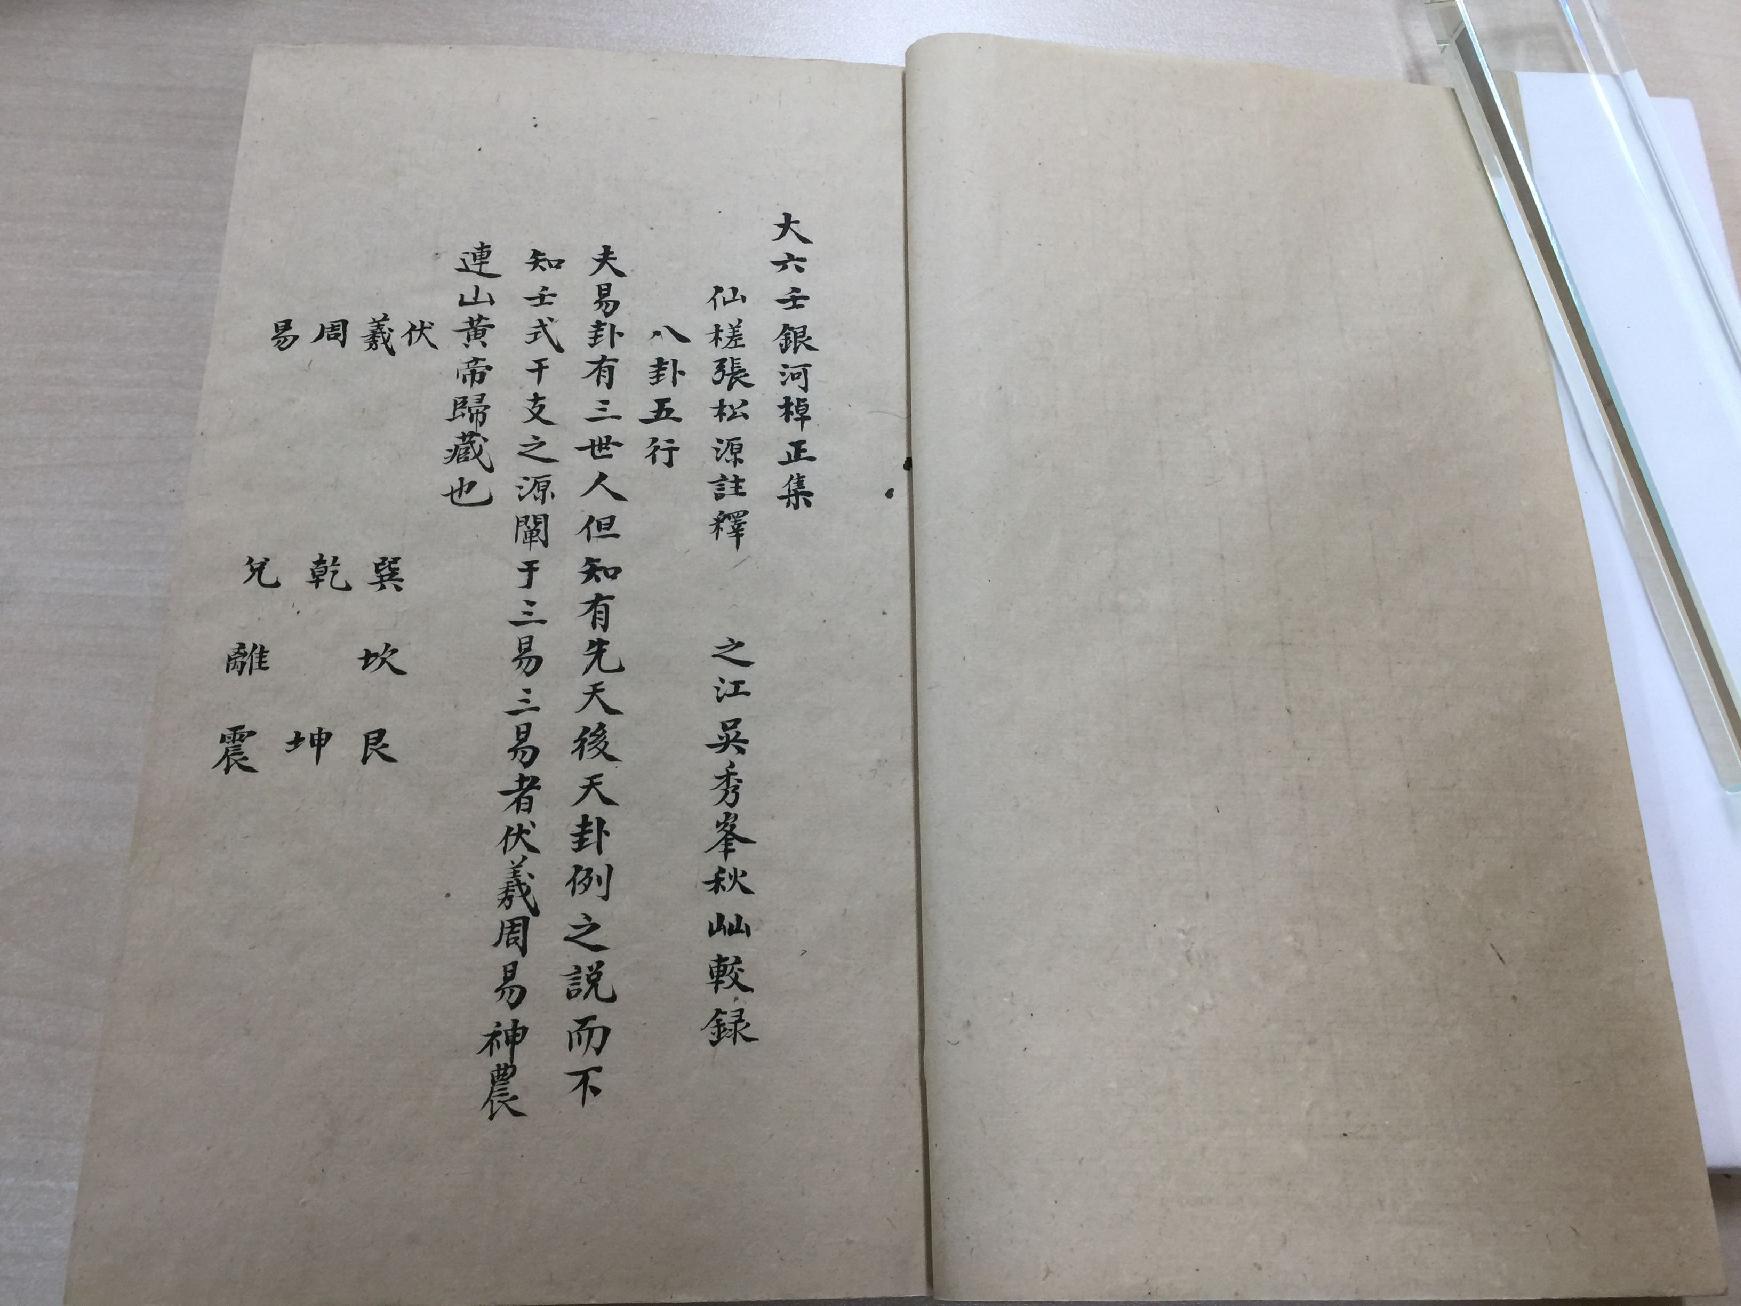 大六壬銀河棹正集
仙槎張松源註釋 之江吳秀峯秋山山較録
八卦五行
夫易卦有三世人但知有先天後天卦例之説而不
知壬式干支之源闡于三易三易者伏羲周易神農
連山黃帝歸藏也
伏羲周易
巽坎艮
乾坤
兌離震